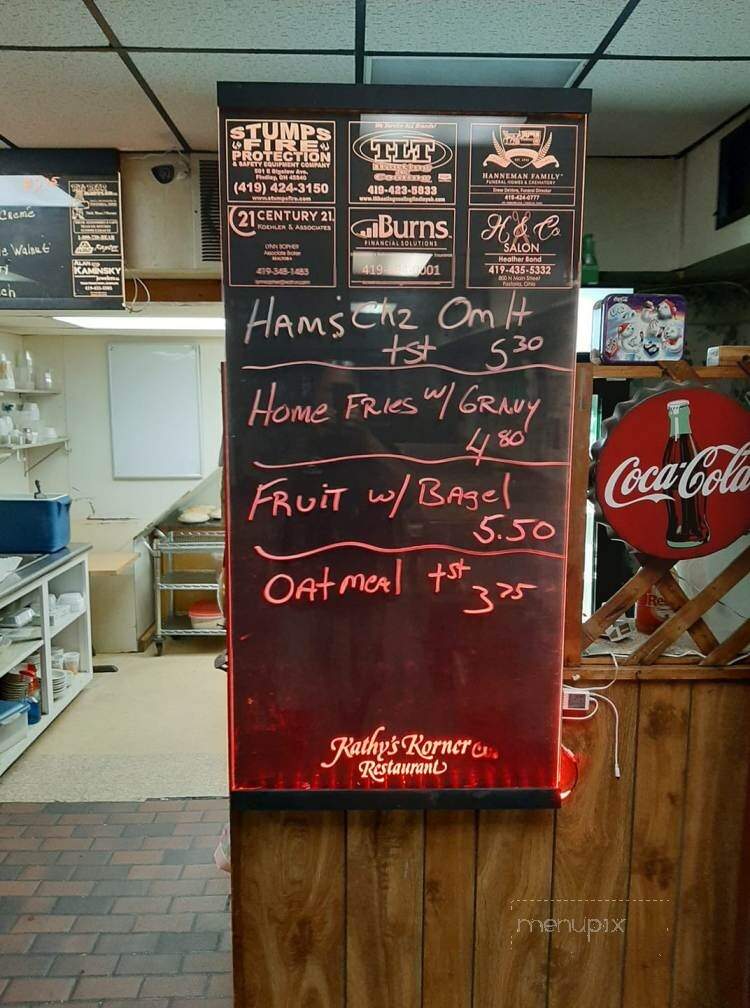 STUMPS
FIRE
PROTECTION
& SAFETY EQUIPMENT COMPANY
Findlay, OH 45840
(419) 424-3150
www.stumpsfire.com
We Service All Brands!
TLT
419-423-5833
HANNEMAN FAMILY
FUNERAL HOMES & CREMATORY
419-424-0777
21 CENTURY 21.
KOEHLER & ASSOCIATES
LYNN SOPHER
Associate Broker
419-348-1483
Burns
FINANCIAL SOLUTIONS
H & C
SALON
Heather Bond
419-435-5332
800 N Main Street
Fostoria, Ohio
HAM & CHZ OMlt
tst 5 30
HOME FRIES W/ GRAVY
4 80
FRUIT W/ BAgel
5.50
OATmeAl tst 3 75
Kathy's Korner
Restaurant
Creme
Walnut
ALAN KAMINSKY
jewelers
Coca-Cola
menupix